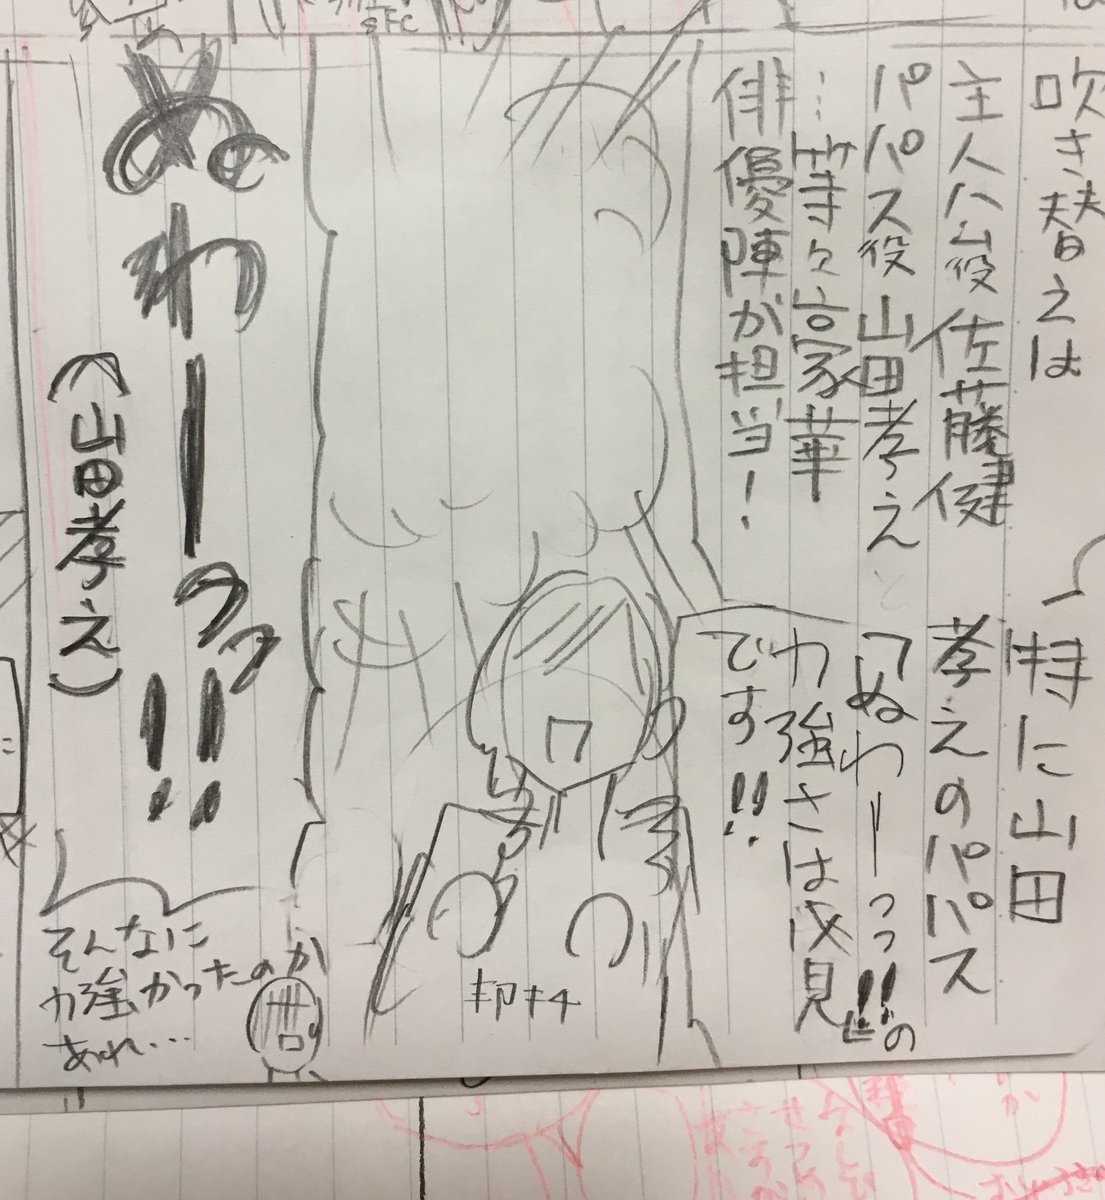 吹き替えは
主人公役 佐藤健
パパス役 山田孝之と
…等々豪華
俳優陣が担当!
特に山田
孝之のパパス
『ぬわーっっ!!』の
力強さは必見
です!!
ぬわーっっ!!
(山田孝之)
そんなに
力強かったのか
あれ…
SFC